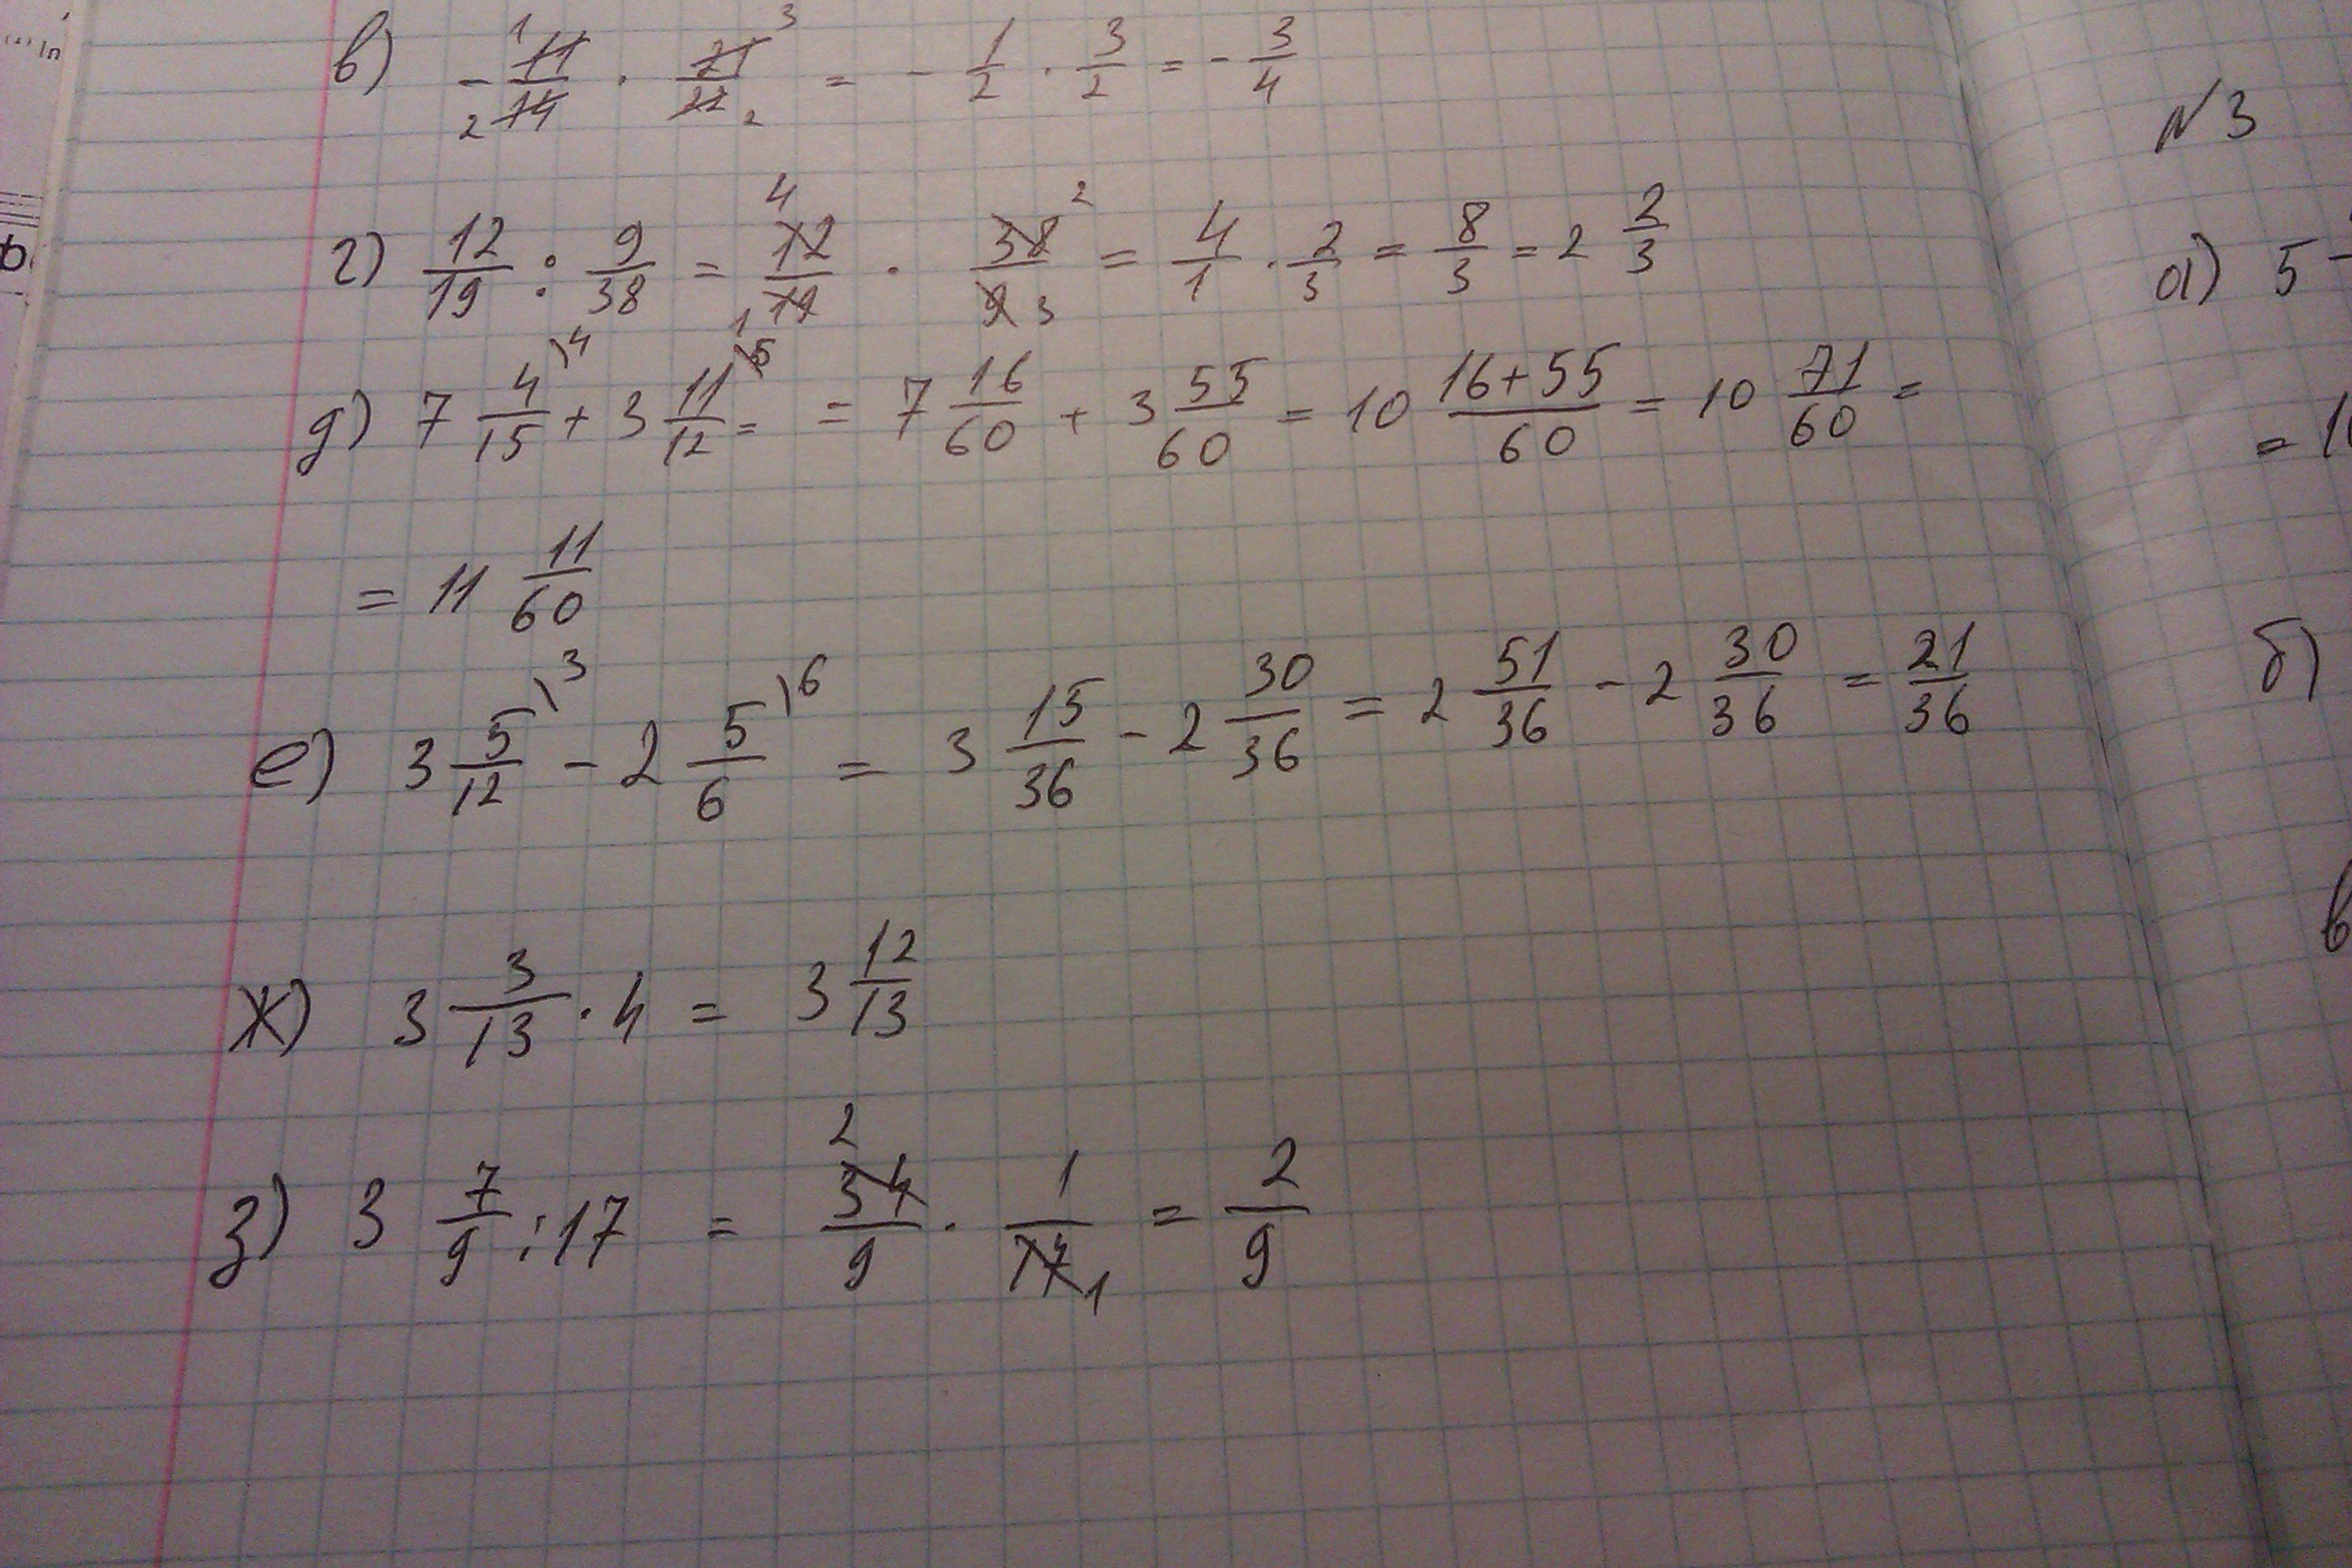 в) -11/14 · 21/22 = -1/2 · 3/2 = -3/4
г) 12/19 : 9/38 = 12/19 · 38/9 = 4/1 · 2/3 = 8/3 = 2 2/3
д) 7 4/15 \4 + 3 11/12 \5 = = 7 16/60 + 3 55/60 = 10 16+55/60 = 10 71/60 =
= 11 11/60
е) 3 5/12 \3 - 2 5/6 \6 = 3 15/36 - 2 30/36 = 2 51/36 - 2 30/36 = 21/36
ж) 3 3/13 · 4 = 3 12/13
з) 3 7/9 : 17 = 34/9 · 1/17 = 2/9
№3
а) 5
=
б)
в